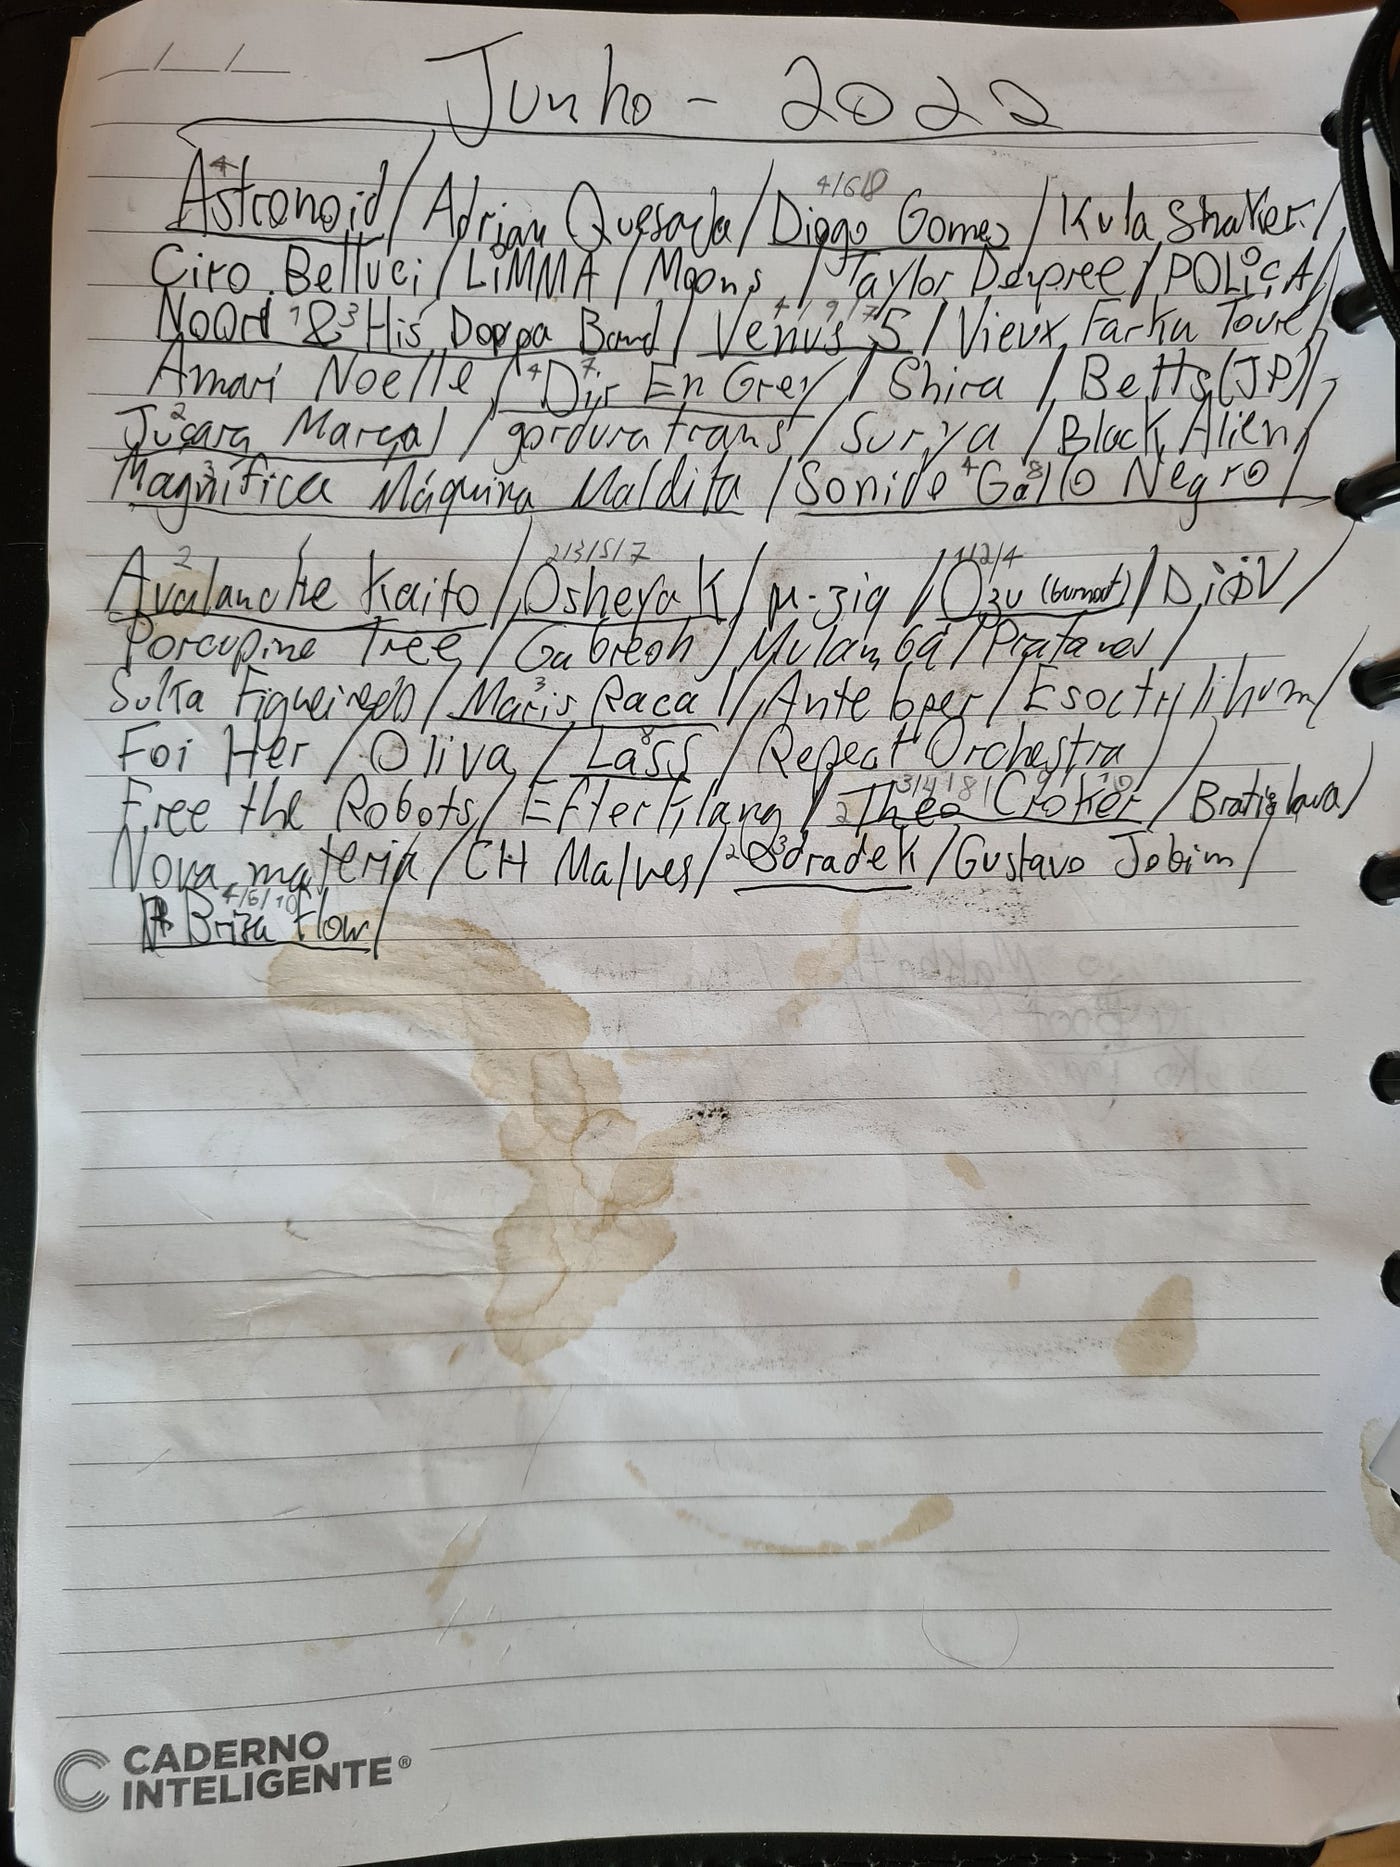 Junho - 2022
4 4/6/8
Astronoid / Adrian Quesada / Diogo Gomes / Kula Shaker /
Ciro Belluci / LiMMA / Moons / Taylor Deupree / POLiÇA /
NoOrd 1 & 3 His Doppa Band / Venus 5 / Vieux Farka Toure /
4/9/7
Amari Noelle / 4 Dir 7 En Grey / Shira / Betts (JP) /
2
Juçara Marçal / gordura trans / Surya / Black Alien /
3 4 8
Magnífica Máquina Maldita / Sonido Gallo Negro /
2 2/3/5/7 1/2/4
Avalanche Kaito / Osheyack / µ-ziq / O3u (burnout) / DiōV /
Porcupine Tree / Gabreoh / Mulambá / Pratanes /
3
Suka Figueiredo / Maris Racal / Anteloper / Esoctrilihum /
8
Foi Her / Oliva / Lass / Repeat Orchestra /
3/4/8/9/10
Free the Robots / Efterklang / 2 Theo Croker / Bratislava /
Nova materia / CH Malves / 2 3 Odradek / Gustavo Jobim /
4/6/10
Briza flow /
CADERNO
INTELIGENTE®